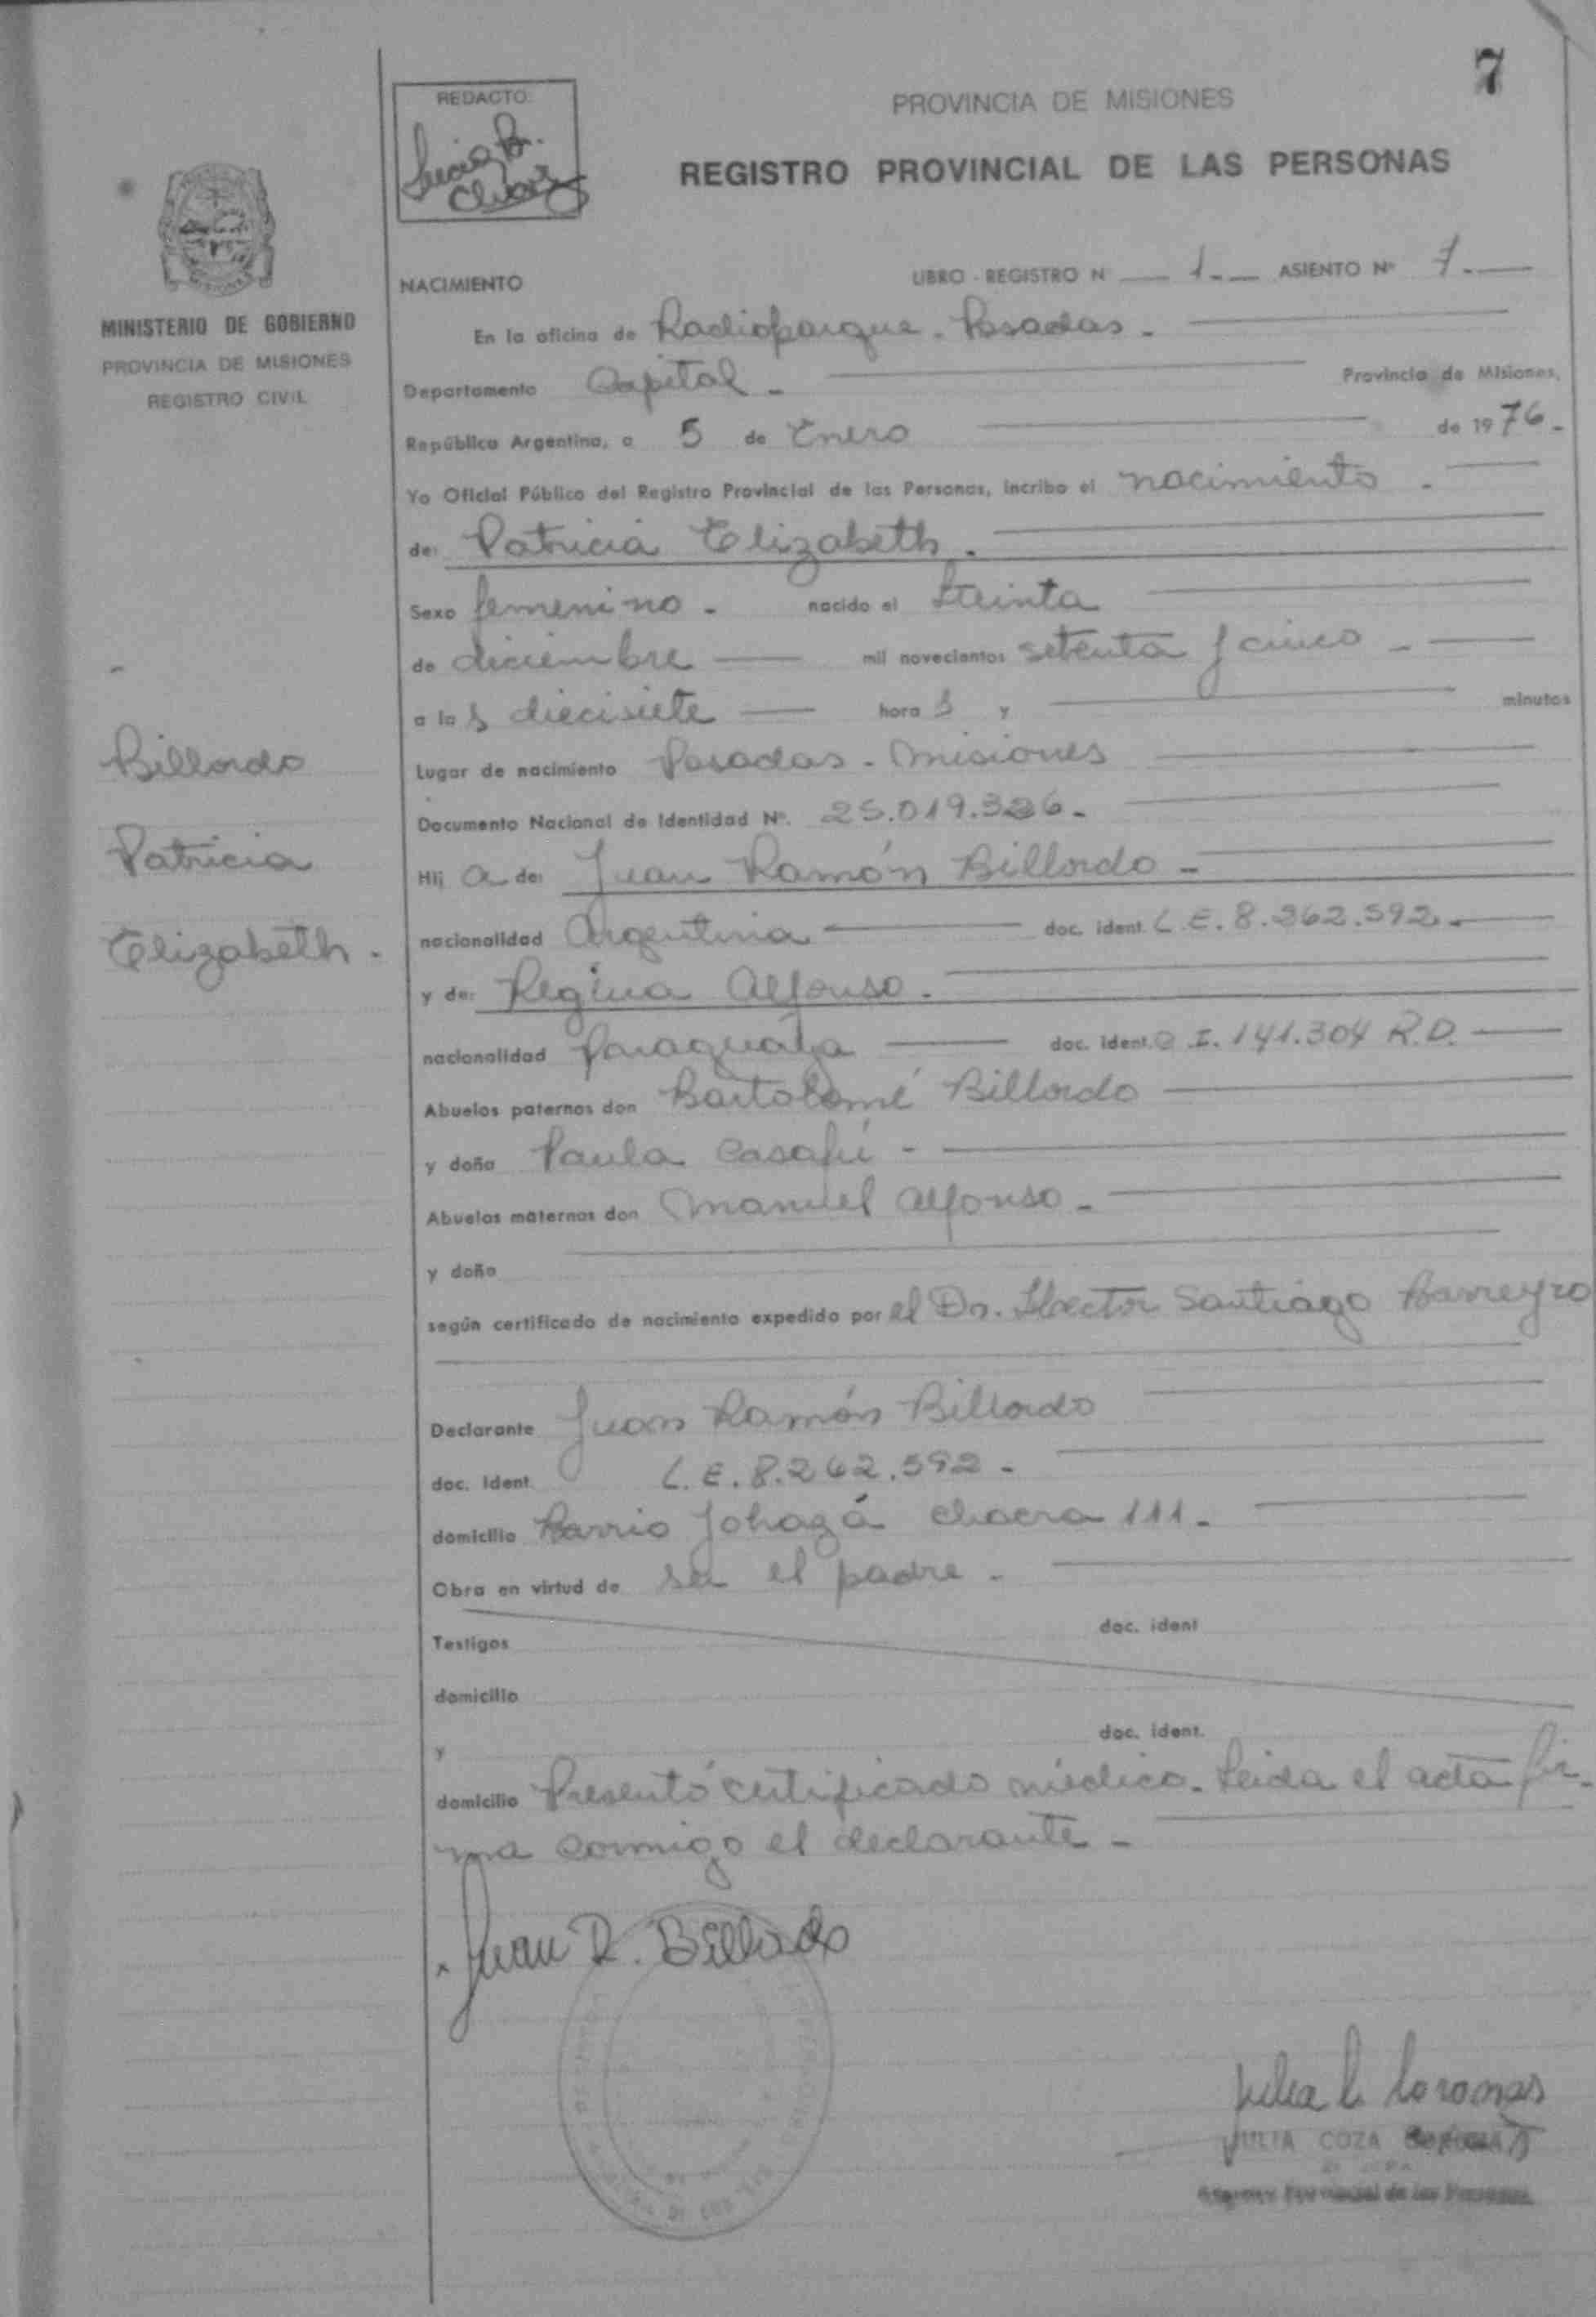 7
REDACTO:
PROVINCIA DE MISIONES
REGISTRO PROVINCIAL DE LAS PERSONAS
NACIMIENTO
LIBRO - REGISTRO N 1.- ASIENTO Nº 7.-
MINISTERIO DE GOBIERNO
PROVINCIA DE MISIONES
REGISTRO CIVIL
En la oficina de Radioparque - Posadas -
Departamento Capital - Provincia de Misiones,
República Argentina, a 5 de Enero de 1976.-
Yo Oficial Público del Registro Provincial de las Personas, incribo el nacimiento -
de: Patricia Elizabeth.
Sexo femenino - nacido el treinta
de diciembre mil novecientos setenta y cinco -
a las diecisiete hora s y minutos
Lugar de nacimiento Posadas - Misiones
Documento Nacional de Identidad Nº. 25.019.326.-
Hij a de: Juan Ramón Billordo -
nacionalidad Argentina doc. ident. L.E. 8.262.592.-
y de: Regina Alfonso.
nacionalidad Paraguaya doc. ident. C.I. 141.304 R.P.
Abuelos paternos don Bartolomé Billordo
y doña Paula Casafú -
Abuelos maternos don Manuel Alfonso -
y doña
según certificado de nacimiento expedido por el Dr. Hector Santiago Barreyro
Declarante Juan Ramón Billordo
doc. ident. L.E. 8.262.592 -
domicilio Barrio Yohazá chacra 111.
Obra en virtud de ser el padre -
Testigos doc. ident
domicilio
y doc. ident.
domicilio Presentó certificado médico. Leida el acta fir-
ma conmigo el declarante -
Billordo
Patricia
Elizabeth.
Juan R. Billordo
JULIA COZA